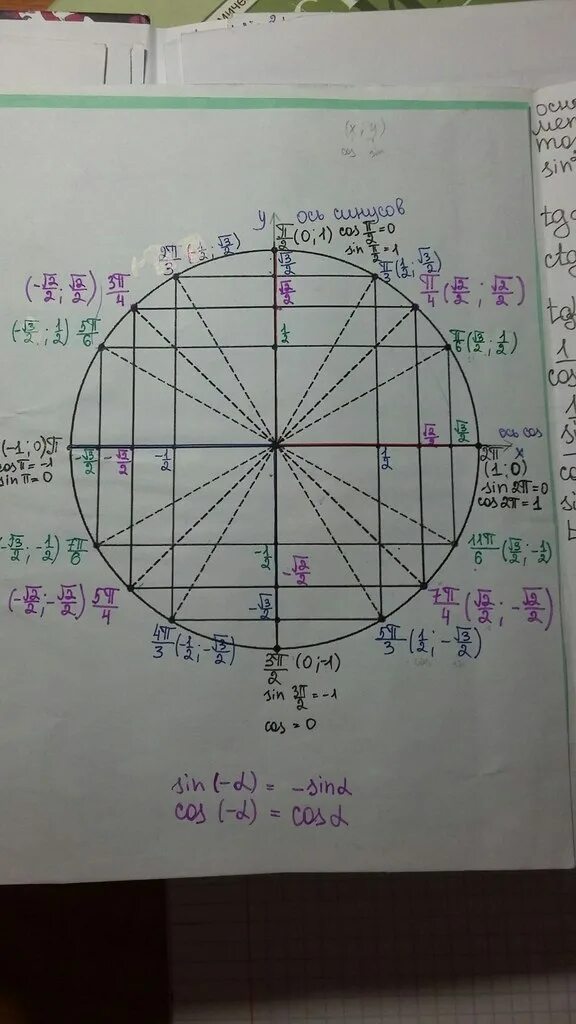 (x; y)
cos sin
y ось синусов
π/2 (0;1) cos π/2 = 0
sin π/2 = 1
2π/3 (-1/2; √3/2)
π/3 (1/2; √3/2)
(-√2/2; √2/2) 3π/4
π/4 (√2/2; √2/2)
(-√3/2; 1/2) 5π/6
π/6 (√3/2; 1/2)
√3/2
√2/2
1/2
(-1; 0) π
cos π = -1
sin π = 0
-√3/2 -√2/2 -1/2
1/2 √2/2 √3/2
ось cos
x
2π
(1; 0)
sin 2π = 0
cos 2π = 1
-1/2
-√2/2
-√3/2
-√3/2; -1/2) 7π/6
11π/6 (√3/2; -1/2)
(-√2/2; -√2/2) 5π/4
7π/4 (√2/2; -√2/2)
4π/3 (-1/2; -√3/2)
5π/3 (1/2; -√3/2)
3π/2 (0;-1)
sin 3π/2 = -1
cos = 0
sin (-α) = -sinα
cos (-α) = cosα
осн
мен
sin²
tg
ctg
tg
1
cos